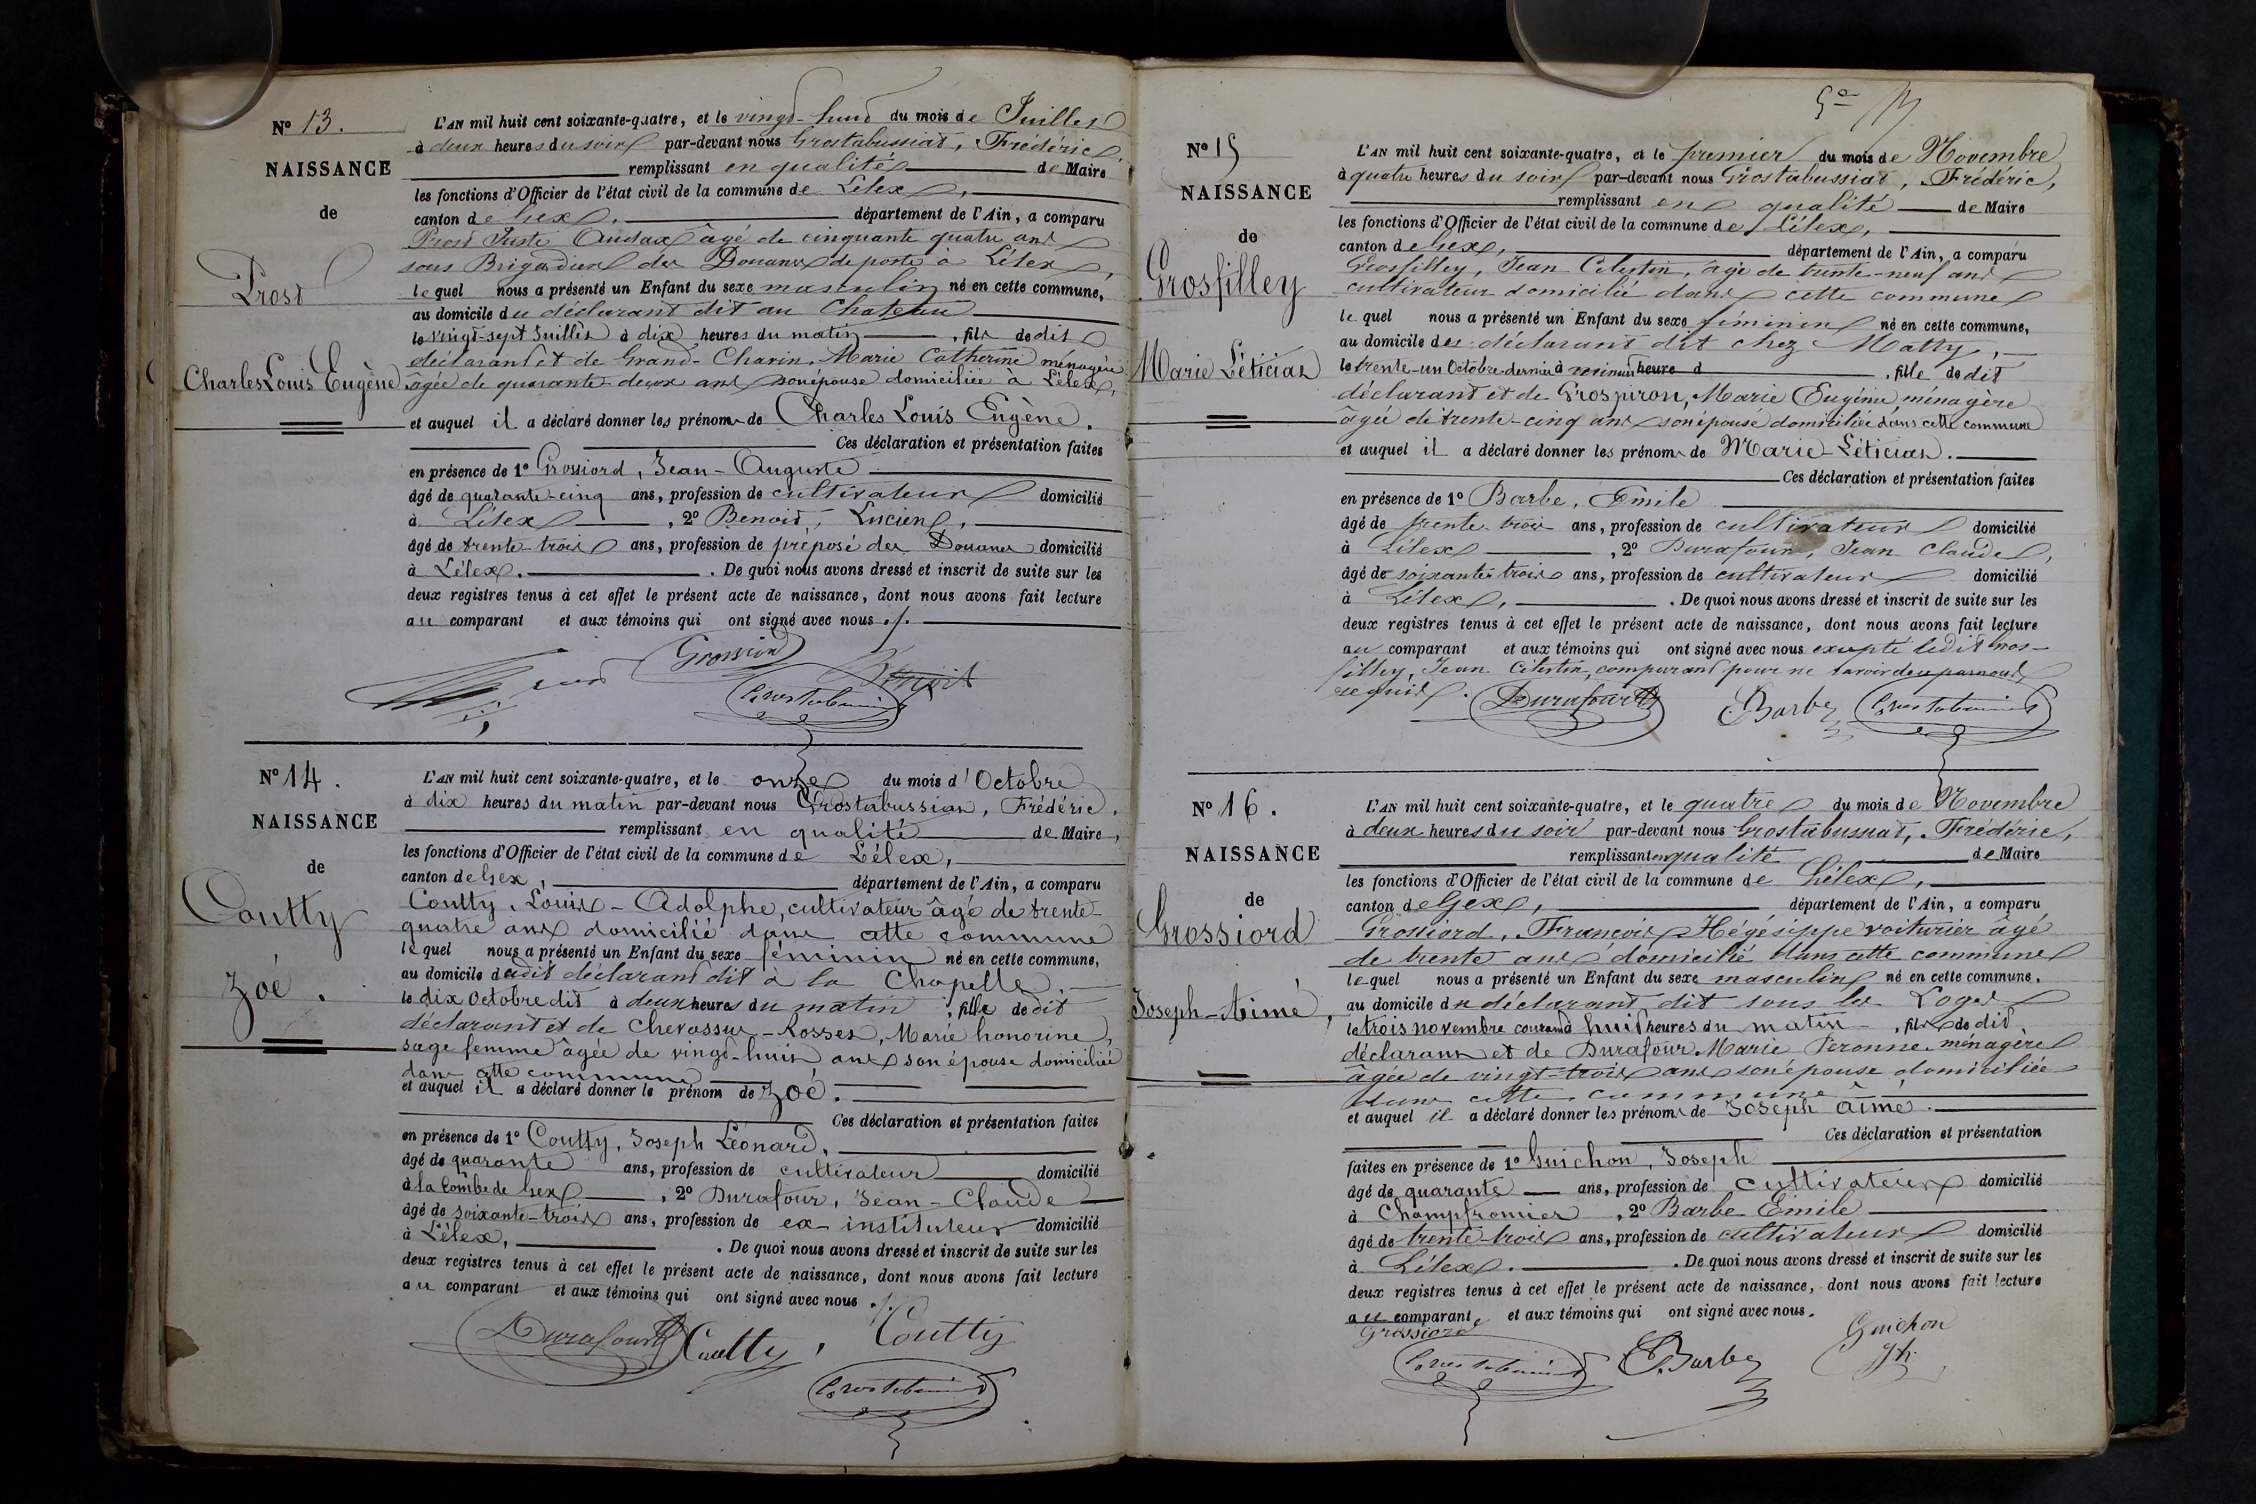 N° 13.
NAISSANCE
de
Prost
Charles Louis Eugène
L'AN mil huit cent soixante-quatre, et le vingt-huit du mois de Juillet
à deux heures du soir par-devant nous Grostabussiat, Frédéric,
remplissant en qualité de Maire
les fonctions d'Officier de l'état civil de la commune de Lélex,
canton de Gex, département de l'Ain, a comparu
Prost Juste Audax âgé de cinquante quatre ans
sous Brigadier des Douanes de poste à Lélex,
lequel nous a présenté un Enfant du sexe masculin né en cette commune,
au domicile du déclarant dit au Chateau
le vingt-sept Juillet à dix heures du matin, fils dudit
déclarant et de Grand-Charin, Marie Catherine ménagère
âgée de quarante-deux ans son épouse domiciliée à Lélex,
et auquel il a déclaré donner les prénoms de Charles Louis Eugène.
Ces déclaration et présentation faites
en présence de 1° Grossiord, Jean-Auguste
âgé de quarante-cinq ans, profession de cultivateur domicilié
à Lélex, 2° Benoit, Lucien,
âgé de trente-trois ans, profession de préposé des Douanes domicilié
à Lélex. De quoi nous avons dressé et inscrit de suite sur les
deux registres tenus à cet effet le présent acte de naissance, dont nous avons fait lecture
au comparant et aux témoins qui ont signé avec nous ./.
Grossiord
Benoit
Grostabussiat
N° 14.
NAISSANCE
de
Coutty
Zoé.
L'AN mil huit cent soixante-quatre, et le onze du mois d'Octobre
à dix heures du matin par-devant nous Grostabussiat, Frédéric,
remplissant en qualité de Maire,
les fonctions d'Officier de l'état civil de la commune de Lélex,
canton de Gex, département de l'Ain, a comparu
Coutty, Louis-Adolphe, cultivateur âgé de trente-
quatre ans domicilié dans cette commune
lequel nous a présenté un Enfant du sexe féminin né en cette commune,
au domicile dudit déclarant dit à la Chapelle,
le dix Octobre dit à deux heures du matin, fille dudit
déclarant et de Chevassus-Rosset, Marie honorine,
sage femme âgée de vingt-huit ans son épouse domiciliée
dans cette commune
et auquel il a déclaré donner le prénom de Zoé.
Ces déclaration et présentation faites
en présence de 1° Coutty, Joseph Léonard,
âgé de quarante ans, profession de cultivateur domicilié
à la Combe de Gex, 2° Durafour, Jean-Claude
âgé de soixante-trois ans, profession de ex-instituteur domicilié
à Lélex, . De quoi nous avons dressé et inscrit de suite sur les
deux registres tenus à cet effet le présent acte de naissance, dont nous avons fait lecture
au comparant et aux témoins qui ont signé avec nous ./.
Durafour Coutty, Coutty
Grostabussiat
N° 15
NAISSANCE
de
Grosfilley
Marie Léticias
L'AN mil huit cent soixante-quatre, et le premier du mois de Novembre
à quatre heures du soir par-devant nous Grostabussiat, Frédéric,
remplissant en qualité de Maire
les fonctions d'Officier de l'état civil de la commune de Lélex,
canton de Gex, département de l'Ain, a comparu
Grosfilley, Jean Célestin, âgé de trente-neuf ans
cultivateur domicilié dans cette commune
lequel nous a présenté un Enfant du sexe féminin né en cette commune,
au domicile du déclarant dit chez Matty,
le trente-un Octobre dernier à minuit heure d, fille dudit
déclarant et de Grospiron, Marie Eugénie ménagère
âgée de trente-cinq ans son épouse domiciliée dans cette commune
et auquel il a déclaré donner les prénoms de Marie-Léticias.
Ces déclaration et présentation faites
en présence de 1° Barbe, Emile
âgé de trente trois ans, profession de cultivateur domicilié
à Lélex, 2° Durafour, Jean Claude,
âgé de soixante-trois ans, profession de cultivateur domicilié
à Lélex, . De quoi nous avons dressé et inscrit de suite sur les
deux registres tenus à cet effet le présent acte de naissance, dont nous avons fait lecture
au comparant et aux témoins qui ont signé avec nous excepté ledit Gros-
filley, Jean Célestin, comparant pour ne savoir de ce par nous
requis.
Durafour Barbe Grostabussiat
N° 16.
NAISSANCE
de
Grossiord
Joseph-Aimé,
L'AN mil huit cent soixante-quatre, et le quatre du mois de Novembre
à deux heures du soir par-devant nous Grostabussiat, Frédéric,
remplissant en qualité de Maire
les fonctions d'Officier de l'état civil de la commune de Lélex,
canton de Gex, département de l'Ain, a comparu
Grossiord, François Hégésippe voiturier âgé
de trente ans domicilié dans cette commune
lequel nous a présenté un Enfant du sexe masculin né en cette commune,
au domicile du déclarant dit sous les Loges
le trois novembre courant à huit heures du matin, fils dudit
déclarant et de Durafour Marie Peronne ménagère
âgée de vingt-trois ans son épouse domiciliée
dans cette commune
et auquel il a déclaré donner les prénoms de Joseph aimé.
Ces déclaration et présentation
faites en présence de 1° Guichon, Joseph
âgé de quarante ans, profession de cultivateur domicilié
à Champfromier, 2° Barbe Emile
âgé de trente-trois ans, profession de cultivateur domicilié
à Lélex. . De quoi nous avons dressé et inscrit de suite sur les
deux registres tenus à cet effet le présent acte de naissance, dont nous avons fait lecture
au comparant et aux témoins qui ont signé avec nous.
Grossiord
Grostabussiat E. Barbe Guichon
Jh